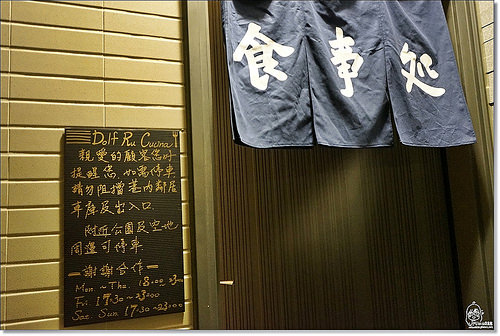 食事処
Dolf Ru Cucina
親愛的顧客您好
提醒您,如需停車
請勿阻擋巷內鄰居
車庫及出入口.
附近公園及空地
周邊可停車
-謝謝合作-
Mon ~ Thu. 18:00~23:00
Fri 17:30~23:00
Sat. Sun 17:30~23:00